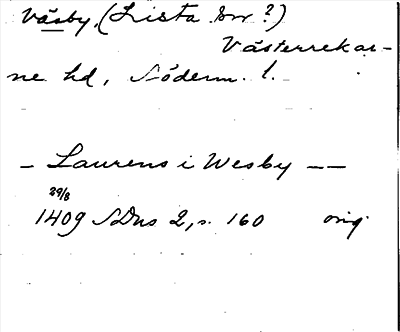 Väsby, (Lista sn ?)
Västerrekar-
ne hd, Söderm. l.
- Laurens i Wesby --
29/8
1409 SDns 2, s. 160 orig.